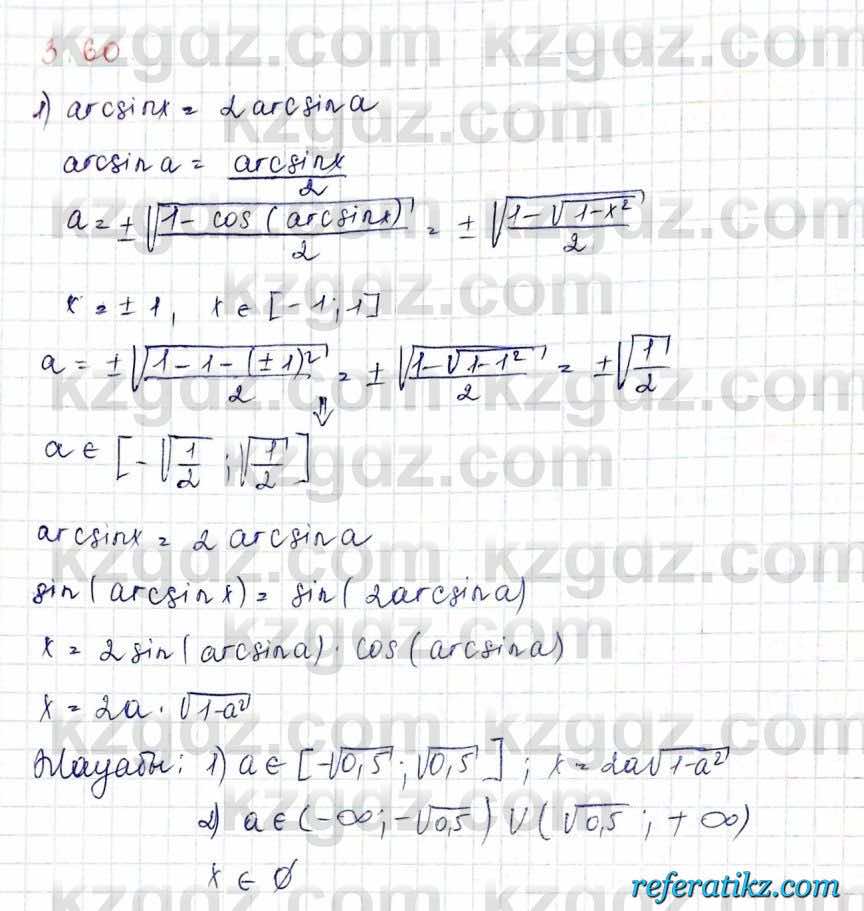 3.60
1) arcsinx = 2arcsin a
arcsin a = arcsinx/2
a = ±√((1 - cos(arcsinx))/2) = ±√((1 - √(1-x²))/2)
x = ±1, x ∈ [-1; 1]
a = ±√((1 - 1 - (±1)²)/2) = ±√((1 - √(1-1²))/2) = ±√(1/2)
⇓
a ∈ [-√(1/2); √(1/2)]
arcsinx = 2arcsin a
sin(arcsinx) = sin(2arcsin a)
x = 2sin(arcsin a) · cos(arcsin a)
x = 2a · √(1-a²)
Жауабы: 1) a ∈ [-√0,5; √0,5]; x = 2a√(1-a²)
2) a ∈ (-∞; -√0,5) ∪ (√0,5; +∞)
x ∈ ∅
kzgdz.com
referatikz.com